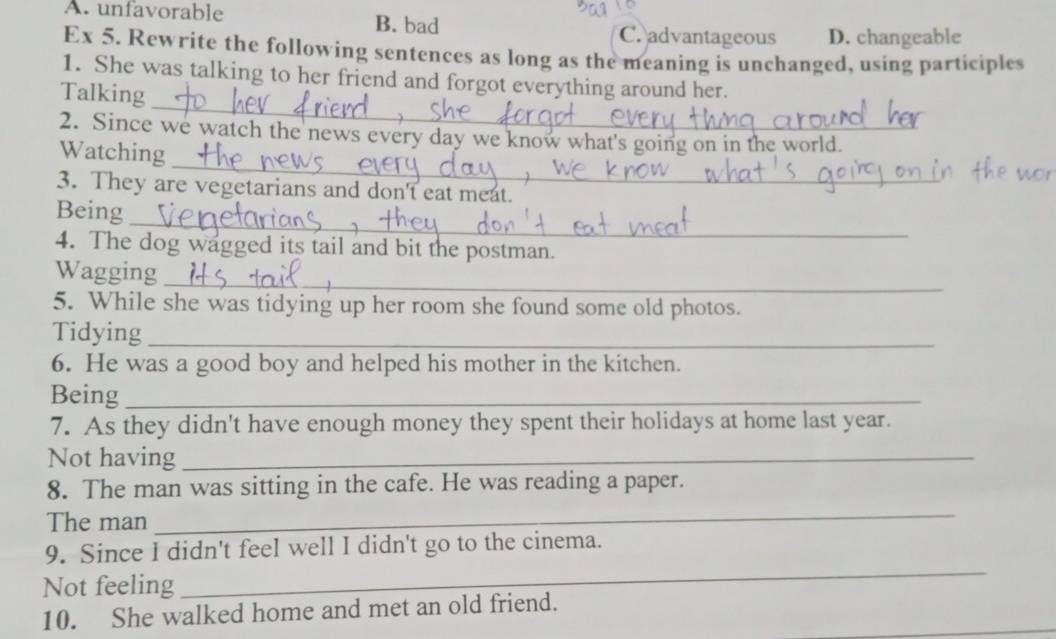 A. unfavorable B. bad C. advantageous D. changeable
Ex 5. Rewrite the following sentences as long as the meaning is unchanged, using participles
1. She was talking to her friend and forgot everything around her.
Talking to her friend, she forgot every thing around her
2. Since we watch the news every day we know what's going on in the world.
Watching the news every day, we know what's going on in the wor
3. They are vegetarians and don't eat meat.
Being vegetarians, they don't eat meat
4. The dog wagged its tail and bit the postman.
Wagging its tail,
5. While she was tidying up her room she found some old photos.
Tidying
6. He was a good boy and helped his mother in the kitchen.
Being
7. As they didn't have enough money they spent their holidays at home last year.
Not having
8. The man was sitting in the cafe. He was reading a paper.
The man
9. Since I didn't feel well I didn't go to the cinema.
Not feeling
10. She walked home and met an old friend.